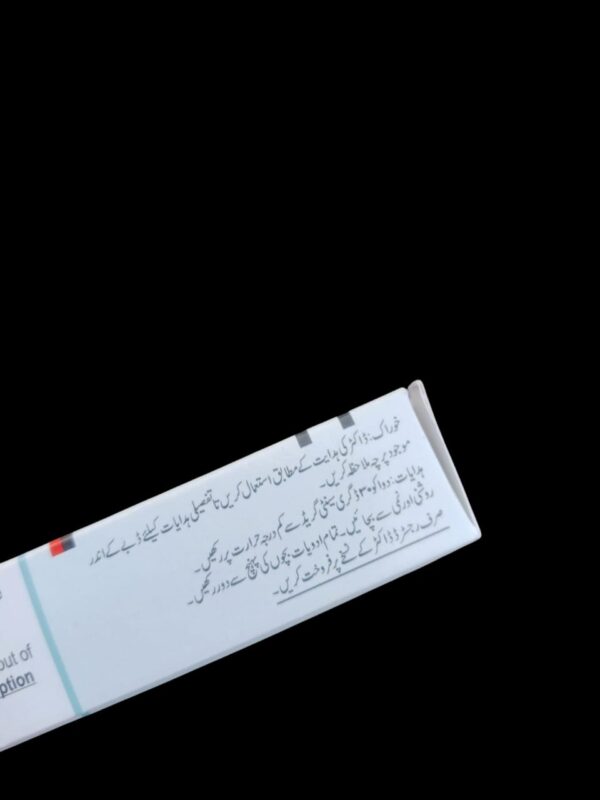 خوراک: ڈاکٹر کی ہدایت کے مطابق استعمال کریں تا تفصیلی ہدایات کیلئے ڈبے کے اندر
موجود پرچہ ملاحظہ کریں۔
ہدایات: دوا کو ۳۰ ڈگری سینٹی گریڈ سے کم درجہ حرارت پر رکھیں۔
روشنی اور نمی سے بچائیں۔ تمام ادویات بچوں کی پہنچ سے دور رکھیں۔
صرف رجسٹرڈ ڈاکٹر کے نسخے پر فروخت کریں۔
out of
ption